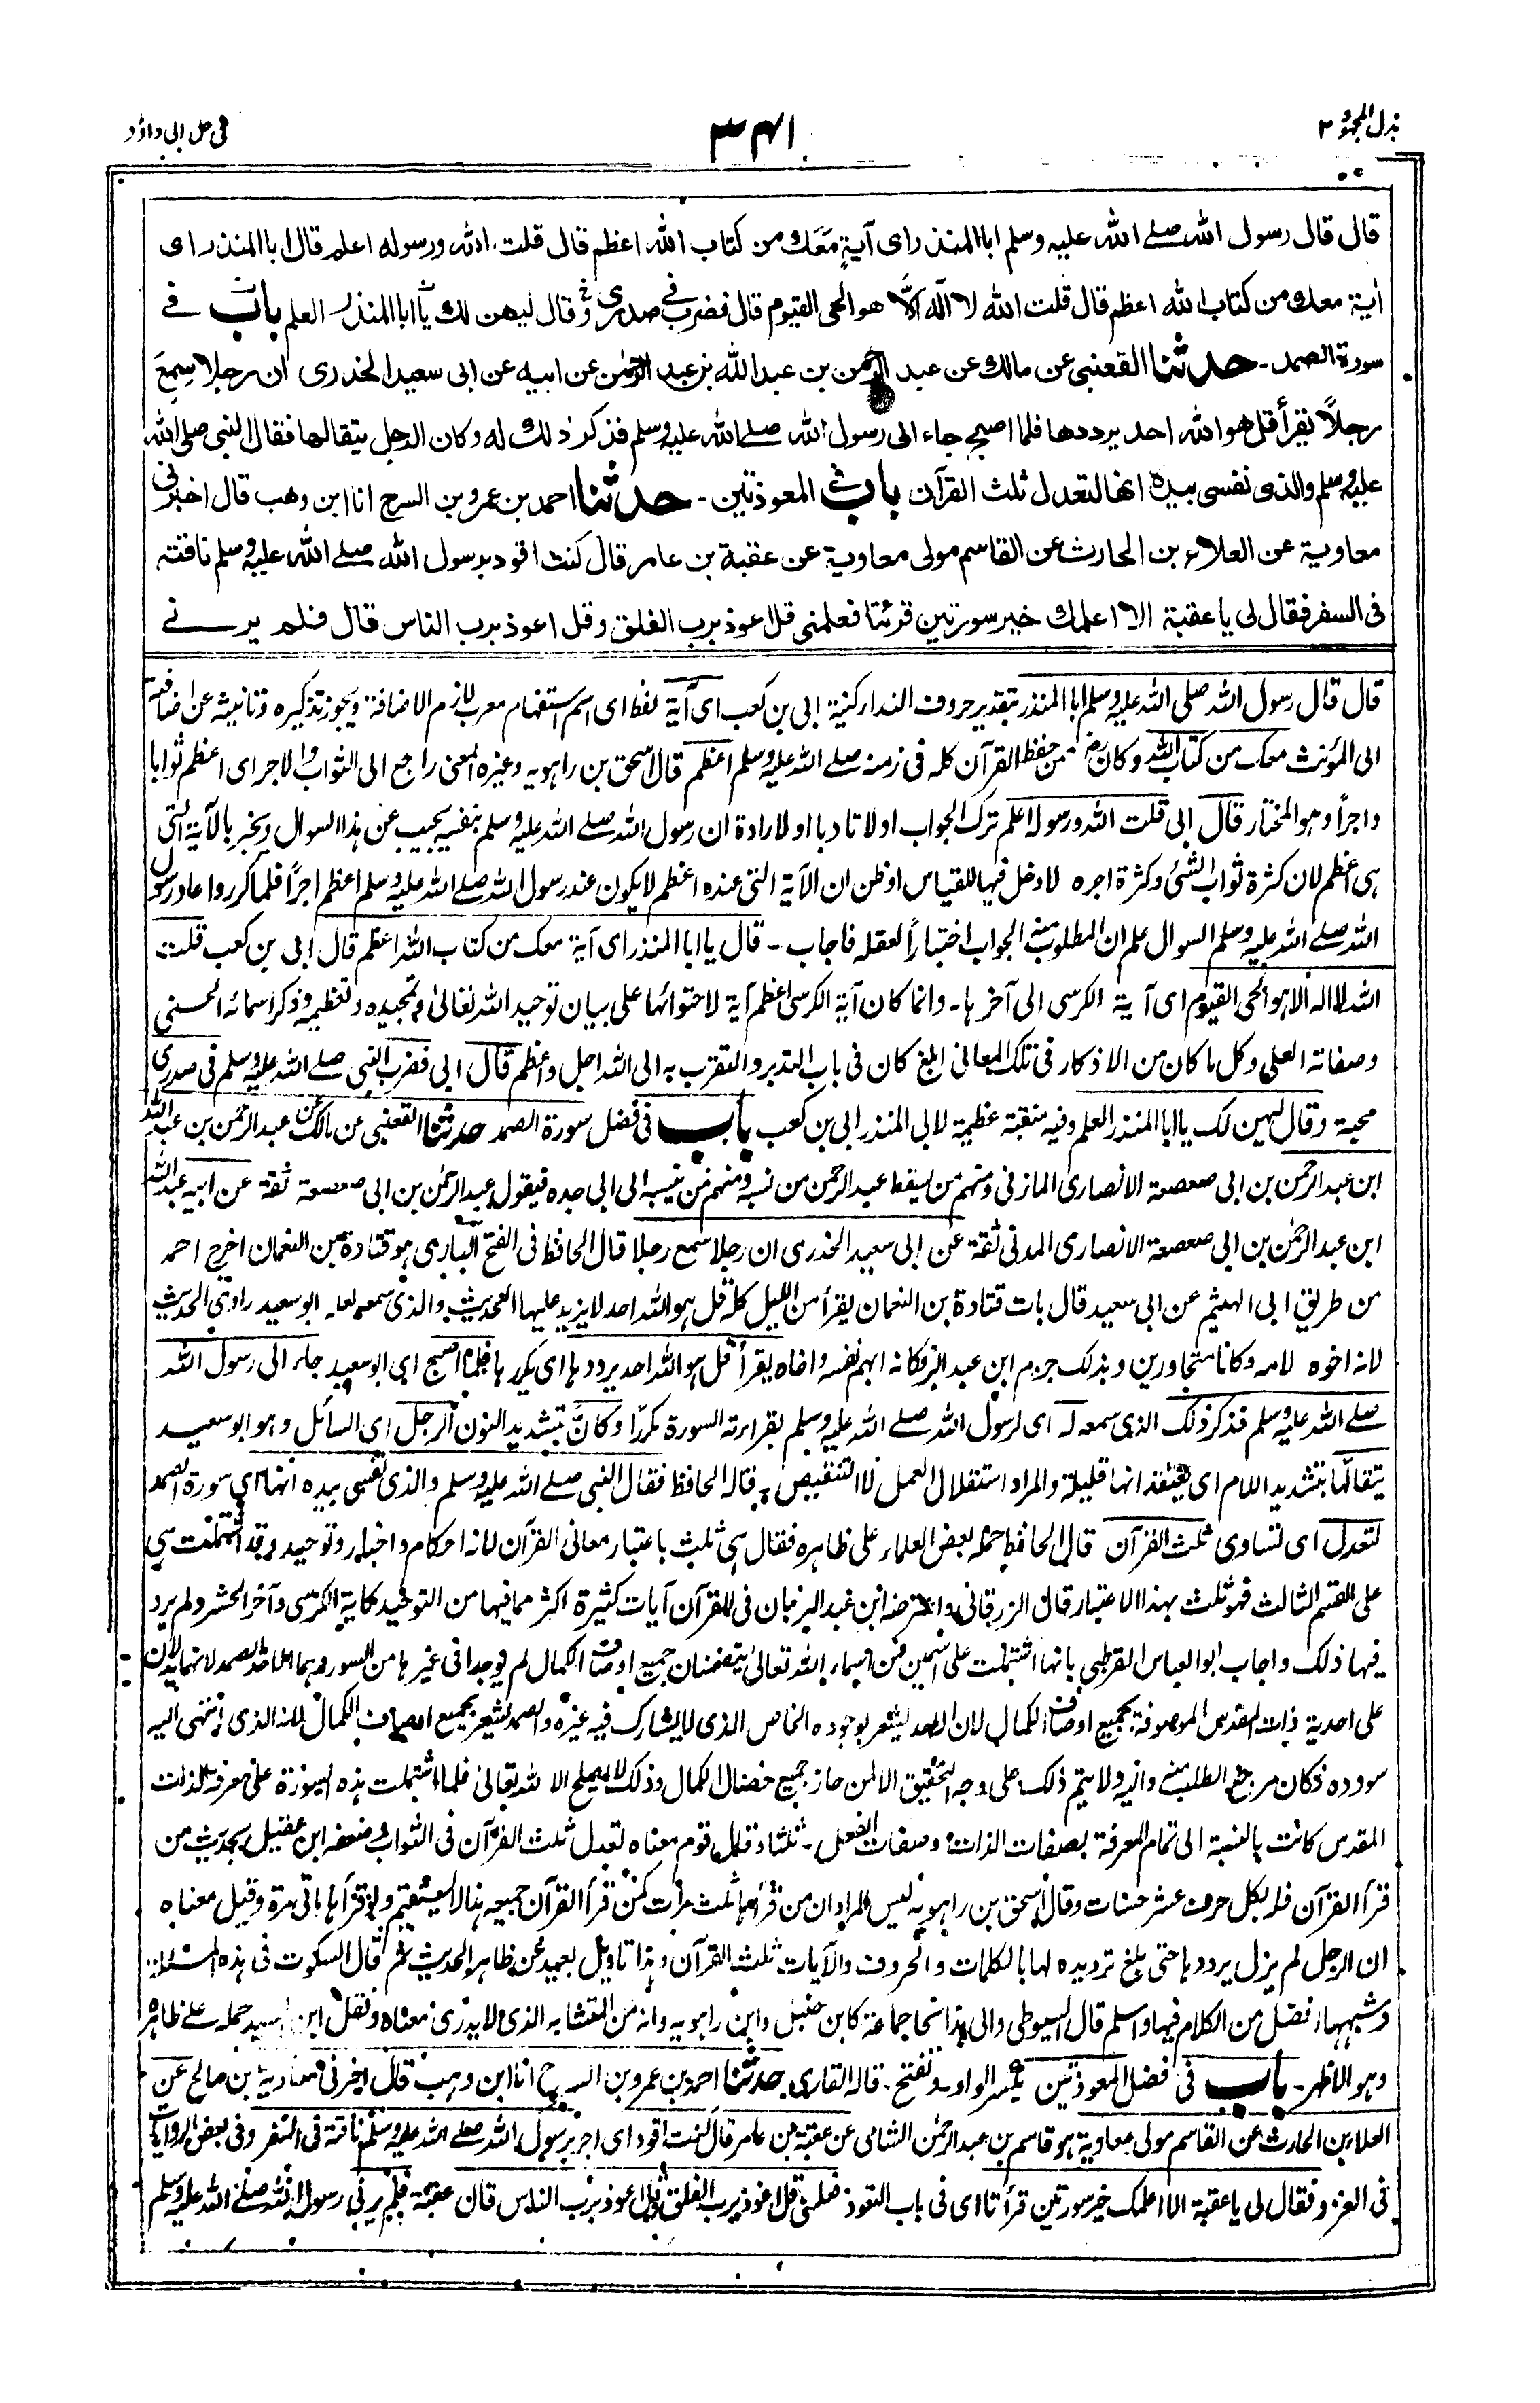 بذل المجهود ٢
٣٤١
فی حل ابی داؤد
قال قال رسول الله صلے الله علیه وسلم ابا المنذر ای آیةٍ مَعَك من كتاب الله اعظم قال قلت الله ورسوله اعلم قال ابا المنذر ای
اٰیة معك من كتاب الله اعظم قال قلت الله لا اله الّا هو الحی القیوم قال فضرب فی صدری وقال لیهن لك یا ابا المنذر العلم باب فے
سورة الصمد۔ حدثنا القعنبی عن مالك عن عبد الرحمن بن عبد الله بن عبد الرحمٰن عن ابیه عن ابی سعید الخدری ان رجلا سمِعَ
رجلاً یقرأ قل هو الله احد یرددها فلما اصبح جاء الی رسول الله صلے الله علیه وسلم فذكر ذلك له وكان الرجل یتقالها فقال النبی صلی الله
علیه وسلم والذی نفسی بیده انها لتعدل ثلث القرآن باب المعوذتین۔ حدثنا احمد بن عمرو بن السرح انا ابن وهب قال اخبرنی
معاویة عن العلاء بن الحارث عن القاسم مولی معاویة عن عقبة بن عامر قال كنت اقود برسول الله صلے الله علیه وسلم ناقته
فی السفر فقال لی یا عقبة الا اعلمك خیر سورتین قرئتا فعلمنی قل اعوذ برب الفلق وقل اعوذ برب الناس قال فلم یرنے
قال قال رسول الله صلی الله علیه وسلم ابا المنذر بتقدیر حروف النداء کنیة ابی بن کعب ای آیة لفظ ای اسم استفهام معرب لازم الاضافة ویجوز تذکیره وتانیثه عن اضافته
الی المؤنث معک من کتاب الله وکان رض ممن حفظ القرآن کله فی زمنه صلے الله علیه وسلم اعظم قال اسحق بن راهویه وغیره المعنی راجع الی الثواب والاجر ای اعظم ثوابا
واجراً وهو المختار قال ابی قلت الله ورسوله اعلم ترک الجواب اولا تادبا او لارادة ان رسول الله صلے الله علیه وسلم بنفسه یجیب عن هذا السوال ویخبر بالآیة التی
هی اعظم لان کثرة ثواب الشئ وکثرة اجره لا دخل فیها للقیاس او ظن ان الآیة التی عنده اعظم لا یکون عند رسول الله صلے الله علیه وسلم اعظم اجراً فلما کرر واعاد رسول
الله صلے الله علیه وسلم السوال علم ان المطلوب منه الجواب اختباراً لعقله فاجاب ۔ قال یا ابا المنذر ای آیة معک من کتاب الله اعظم قال ابی بن کعب قلت
الله لا اله الا هو الحی القیوم ای آیة الکرسی الی آخرها۔ وانما کان آیة الکرسی اعظم آیة لاحتوائها علی بیان توحید الله تعالیٰ وتمجیده وتعظیمه وذکر اسمائه الحسنی
وصفاته العلی وکل ما کان من الاذکار فی تلک المعانی ابلغ کان فی باب التدبر والتقرب به الی الله اجل واعظم قال ابی فضرب النبی صلے الله علیه وسلم فی صدری
محبة وقال لیهن لک یا ابا المنذر العلم وفیه منقبة عظیمة لابی المنذر ابی بن کعب باب فی فضل سورة الصمد حدثنا القعنبی عن مالک عن عبد الرحمن بن عبد الله
ابن عبد الرحمن بن ابی صعصعة الانصاری المازنی ومنهم من یسقط عبد الرحمن من نسبه ومنهم من ینسبه الی ابی جده فیقول عبد الرحمٰن بن ابی صعصعة ثقة عن ابیه عبد الله
ابن عبد الرحمٰن بن ابی صعصعة الانصاری المدنی ثقة عن ابی سعید الخدری ان رجلا سمع رجلا قال الحافظ فی الفتح الباری هو قتادة بن النعمان اخرج احمد
من طریق ابی الهیثم عن ابی سعید قال بات قتادة بن النعمان یقرأ من اللیل کله قل هو الله احد لا یزید علیها الحدیث والذی سمعه لعله ابو سعید راوی الحدیث
لانه اخوه لامه وکانا متجاورین وبذلک جزم ابن عبد البر فکانه ابهم نفسه واخاه یقرأ قل هو الله احد یرددها ای یکررها فلما اصبح ای ابو سعید جاء الی رسول الله
صلے الله علیه وسلم فذکر ذلک الذی سمعه له ای لرسول الله صلے الله علیه وسلم بقراءته السورة مکرراً وکانّ بتشدید النون الرجل ای السائل وهو ابو سعید
یتقالّها بتشدید اللام ای یعتقد انها قلیلة والمراد استقلال العمل لا التنقیص قاله الحافظ فقال النبی صلے الله علیه وسلم والذی نفسی بیده انها ای سورة الصمد
لتعدل ای لتساوی ثلث القرآن قال الحافظ حمله بعض العلماء علی ظاهره فقال هی ثلث باعتبار معانی القرآن لانه احکام واخبار وتوحید وقد اشتملت هی
علی القسم الثالث فهو ثلث بهذا الاعتبار قال الزرقانی واعترضه ابن عبد البر بان فی القرآن آیات کثیرة اکثر مما فیها من التوحید کآیة الکرسی وآخر الحشر ولم یرد
فیها ذلک واجاب ابو العباس القرطبی بانها اشتملت علی اسمین من اسماء الله تعالیٰ یتضمنان جمیع اوصاف الکمال لم یوجدا فی غیرها من السور وهما الاحد الصمد لانهما یدلان
علی احدیة ذات المقدس الموصوفة بجمیع اوصاف الکمال لان الاحد یشعر بوجوده الخاص الذی لا یشارک فیه غیره والصمد یشعر بجمیع اوصاف الکمال لانه الذی انتهی الیه
سودده فکان مرجع الطلب منه والیه ولا یتم ذلک علی وجه التحقیق الا لمن حاز جمیع خصال الکمال وذلک لا یصلح الا لله تعالیٰ فلما اشتملت هذه السورة علی معرفة الذات
المقدس کانت بالنسبة الی تمام المعرفة بصفات الذات وصفات الفعل ۔ ثلثا وقال قوم معناه تعدل ثلث القرآن فی الثواب وضعفه ابن عقیل بحدیث من
قرأ القرآن فله بکل حرف عشر حسنات وقال اسحق بن راهویه لیس المراد ان من قرأها ثلث مرات کمن قرأ القرآن جمیعه هذا لا یستقیم ولو قرأها مأتی مرة وقیل معناه
ان الرجل لم یزل یرددها حتی بلغ تردیده لها بالکلمات والحروف والآیات ثلث القرآن وهذا تاویل بعید عن ظاهر الحدیث ثم قال السکوت فی هذه المسئلة
وشبهها افضل من الکلام فیها واسلم قال السیوطی والی هذا نحا جماعة کابن حنبل وابن راهویه وانه من المتشابه الذی لا یدری معناه ونقل ابن السید حمله علے ظاهره
وهو الاظهر۔ باب فی فضل المعوذتین بکسر الواو وتفتح۔ قاله القاری حدثنا احمد بن عمرو بن السرح انا ابن وهب قال اخبرنی معاویة بن صالح عن
العلاء بن الحارث عن القاسم مولی معاویة هو قاسم بن عبد الرحمٰن الشامی عن عقبة بن عامر قال کنت اقود ای اجر برسول الله صلے الله علیه وسلم ناقته فی السفر وفی بعض الروایات
فی الغزو فقال لی یا عقبة الا اعلمک خیر سورتین قرأتا ای فی باب التعوذ فعلمنی قل اعوذ برب الفلق وقل اعوذ برب الناس قال عقبة فلم یرنی رسول الله صلے الله علیه وسلم